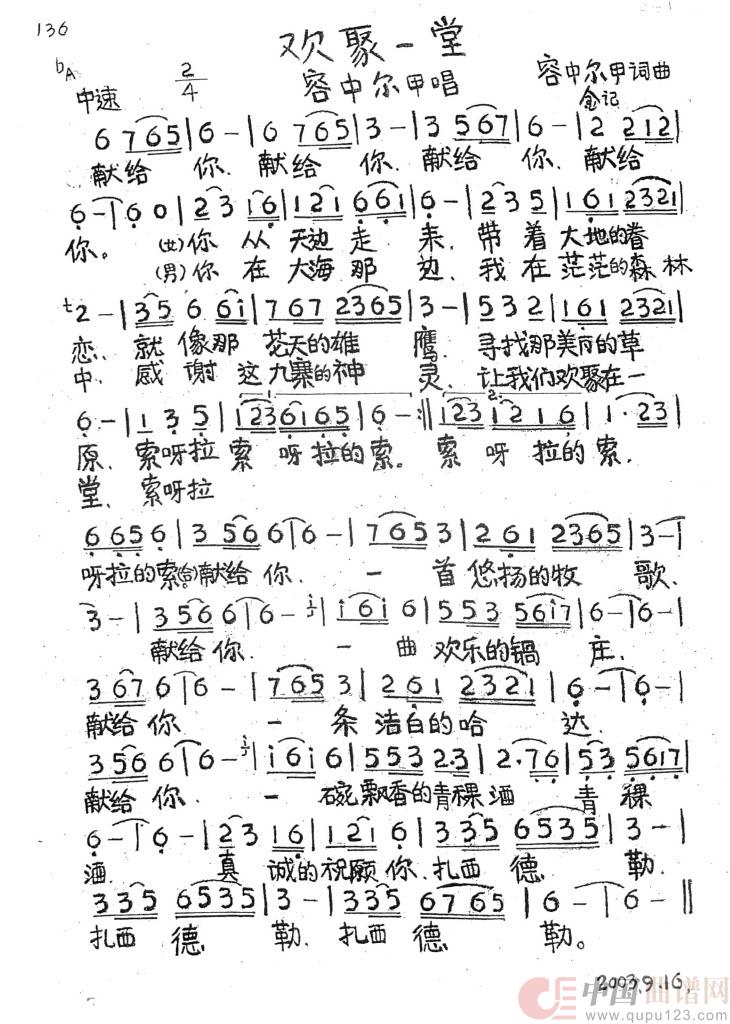 136
欢聚一堂
♭A 中速 2/4 容中尔甲唱 容中尔甲词曲
金记
6 765|6 -|6 765|3 -|3 567|6 -|2 212|
献给 你、献给 你、献给 你、献给
6 -|6 0|23 16|121 661|6 -|235|161 2321|
你。(女)你 从 天边 走 来、带 着 大地的眷
(男)你 在 大海 那 边、我 在 茫茫的森林
2 -|35 6 6i|767 2365|3 -|532|161 2321|
恋、就 像那 苍天的雄 鹰、寻找那美丽的草
中、感 谢 这 九寨的神 灵、让我们欢聚在一
6 -|1 3 5|123 6165|6 -:‖123 1216|1·23|
原、索呀拉 索 呀 拉的索。索 呀 拉的 索、
堂、索呀拉
6656|3 566|6 -|7653|261 2365|3 -|
呀拉的索(合)献给 你、一 首 悠扬的牧 歌、
3 -|3 566|6 -|i6i 6|553 56i7|6 -|6 -|
献给 你、一 曲 欢乐的锅 庄、
3 67 6|6 -|765 3|261 2321|6 -|6 -|
献给 你、一 条 洁白的哈 达、
3566 6|6 -|i6i6|553 2·3|2·76|53 5617|
献给 你、一 碗飘香的青稞 酒 青 稞
6 -|6 -|23 16|121 6|335 6535|3 -|
酒、真 诚的祝愿你、扎西 德 勒、
335 6535|3 -|335 6765|6 -|6 -‖
扎西 德 勒、扎西 德 勒。
2003.9.16.
中国曲谱网
www.qupu123.com